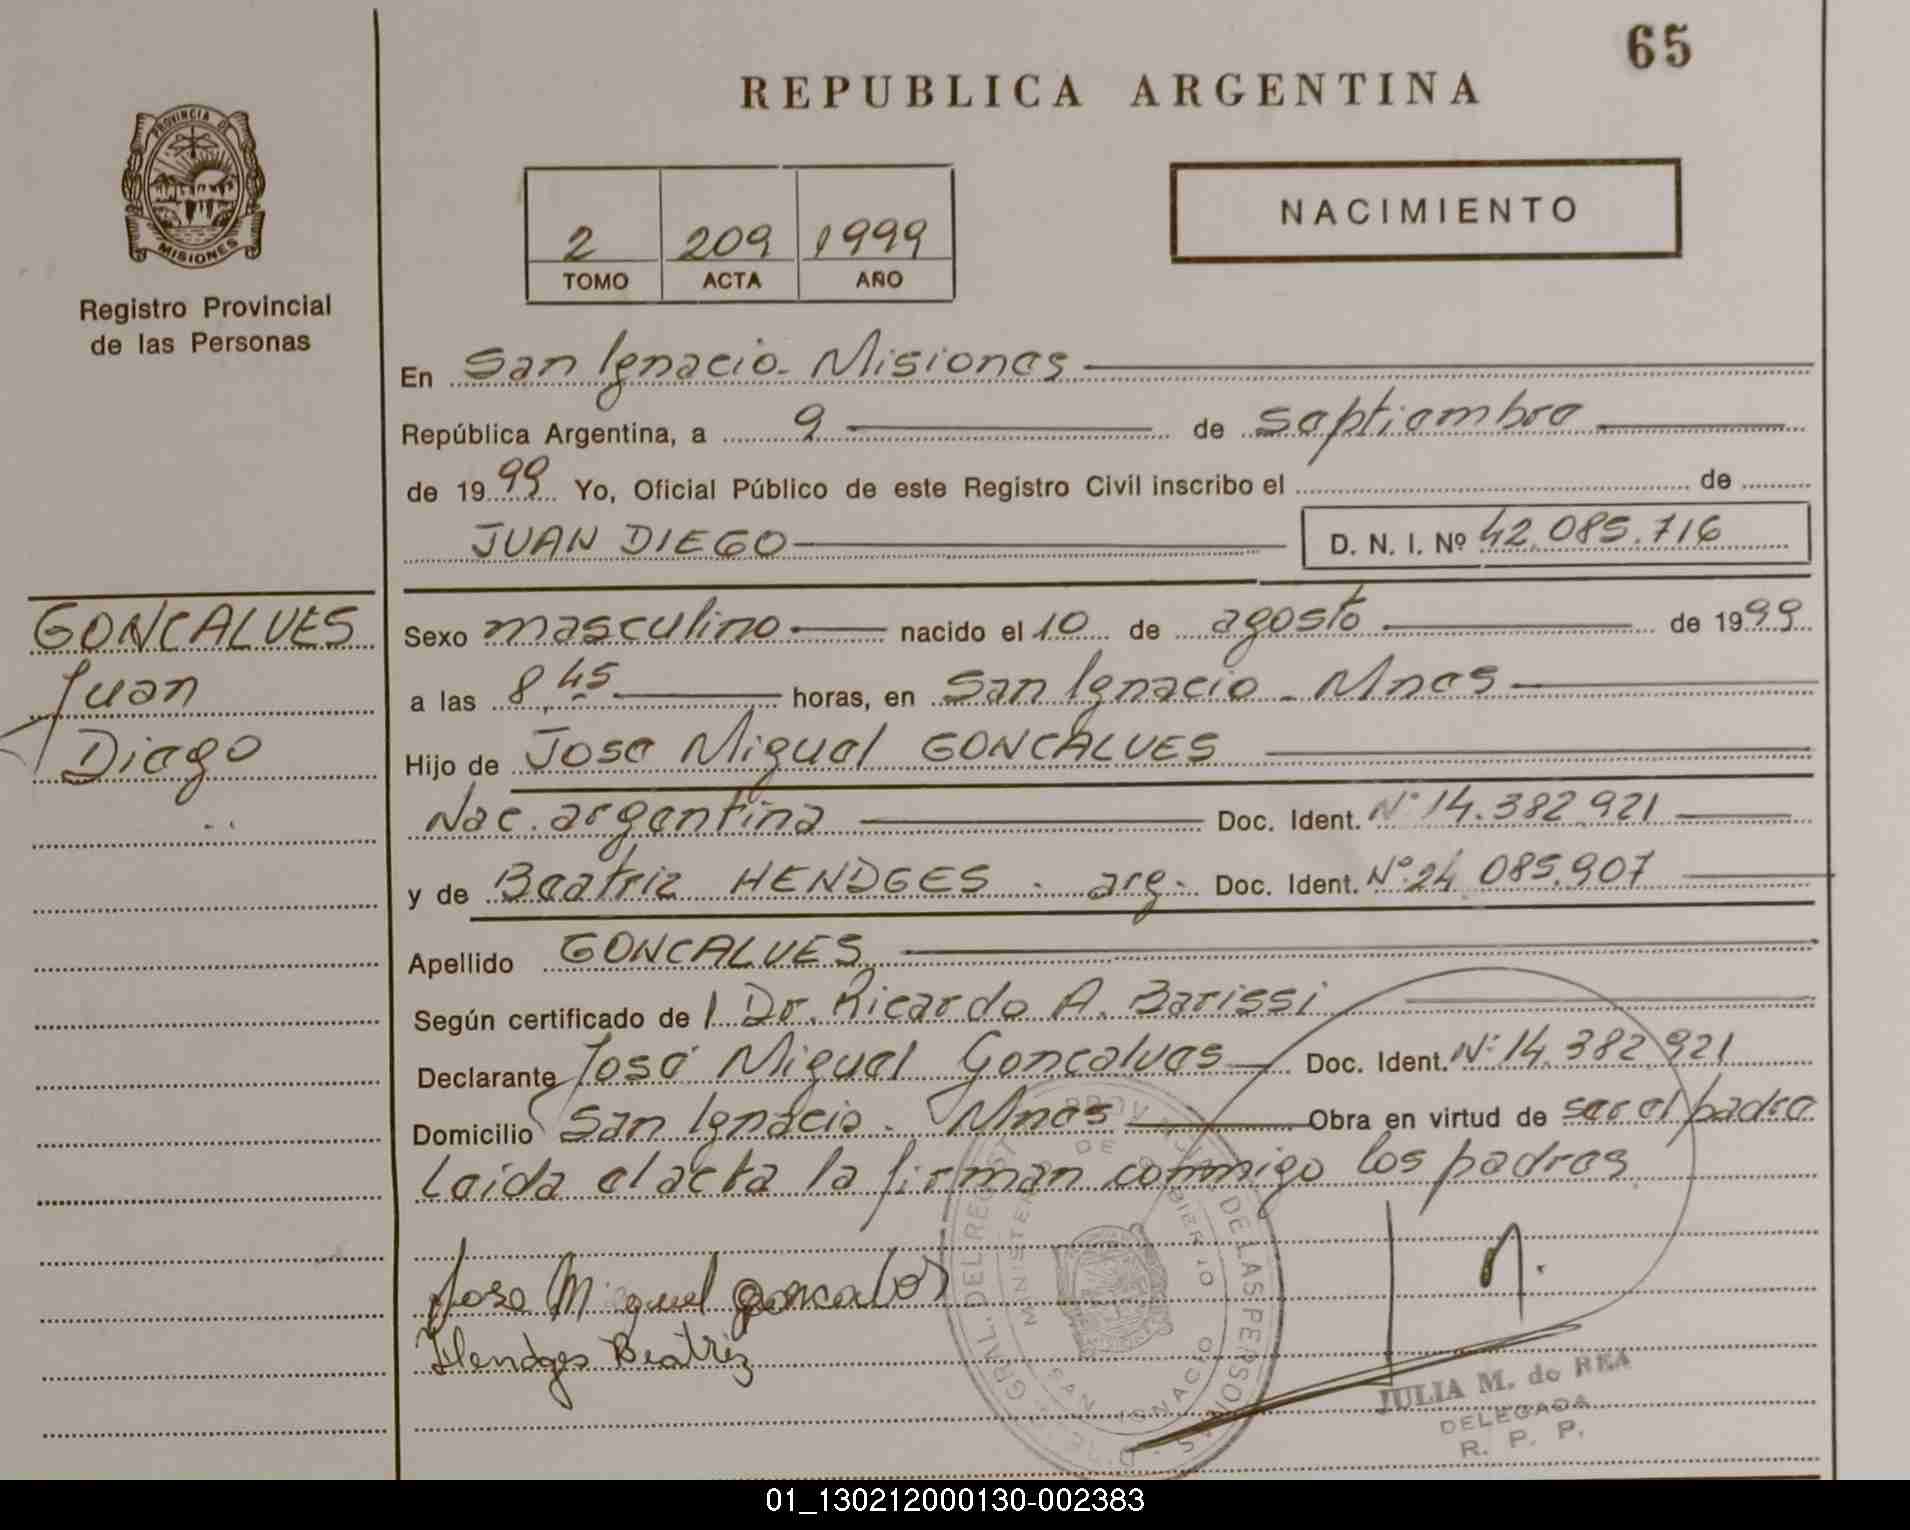 65
REPUBLICA ARGENTINA
PROVINCIA DE
MISIONES
Registro Provincial
de las Personas
2 209 1999
TOMO ACTA AÑO
NACIMIENTO
En San Ignacio - Misiones
República Argentina, a 9 de septiembre
de 1999 Yo, Oficial Público de este Registro Civil inscribo el de
JUAN DIEGO D. N. I. Nº 42.085.716
GONCALVES
Juan
Diego
Sexo masculino nacido el 10 de agosto de 1999
a las 8,45 horas, en San Ignacio - Mnes
Hijo de Jose Miguel GONCALVES
Nac. argentina Doc. Ident. Nº 14.382.921
y de Beatriz HENDGES - arg. Doc. Ident. Nº 24.085.907
Apellido GONCALVES
Según certificado de l Dr. Ricardo A. Barissi
Declarante José Miguel Goncalves Doc. Ident. Nº 14.382.921
Domicilio San Ignacio - Mnes Obra en virtud de ser el padre
Leida el acta la firman conmigo los padres
Jose Miguel goncalves
Hendges Beatriz
JULIA M. de REA
DELEGADA
R. P. P.
01_130212000130-002383